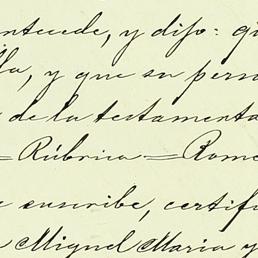 antecede, y dijo: qu
lla, y que su perso
de la testamenta
= Rúbrica = Rome
e suscribe, certifi
Miguel Maria y